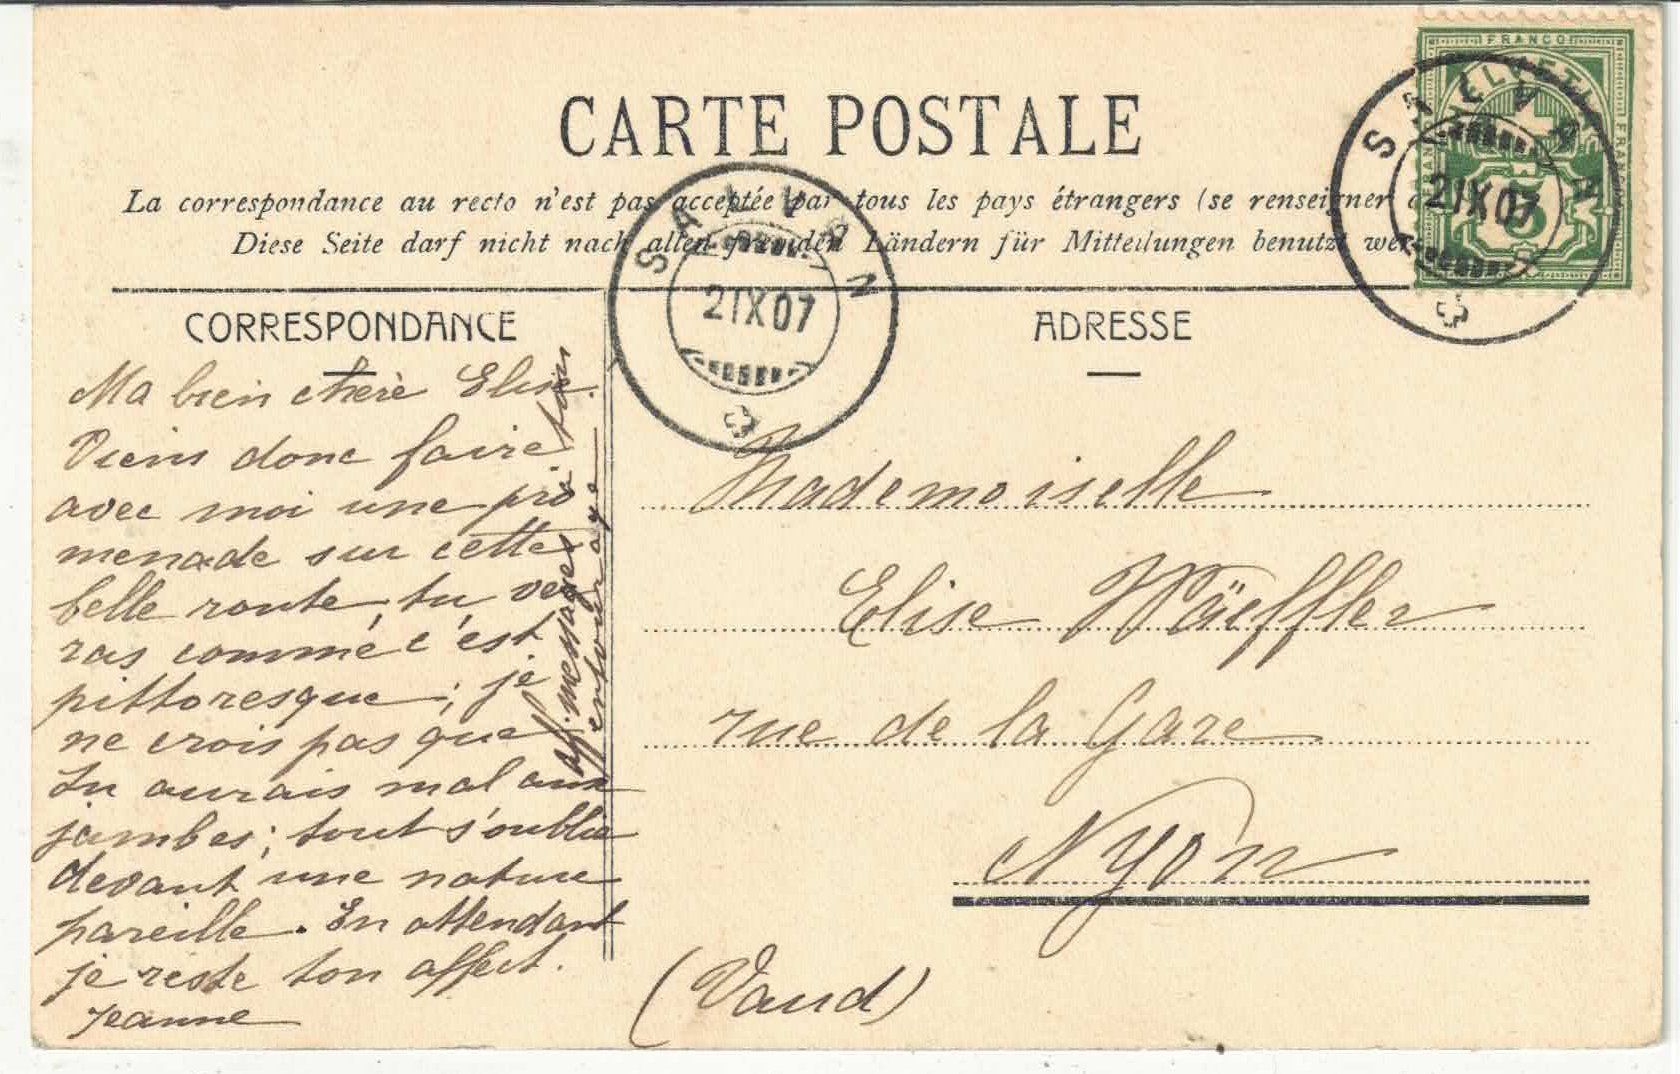 CARTE POSTALE
La correspondance au recto n'est pas acceptée par tous les pays étrangers (se renseigner
Diese Seite darf nicht nach allen fremden Ländern für Mitteilungen benutzt wer
FRANCO
HELVETIA
SALVAN
2 IX 07
5
SALVAN
2 IX 07
CORRESPONDANCE
ADRESSE
Ma bien chère Elise.
Viens donc faire
avec moi une pro
menade sur cette
belle route, tu ver
ras comme c'est
pittoresque; je
ne crois pas que
tu aurais mal aux
jambes; tout s'oublie
devant une nature
pareille. En attendant
je reste ton affect.
Jeanne
aff. messages à ton
entourage
Mademoiselle
Elise Wäeffler
rue de la Gare
Nyon
(Vaud)